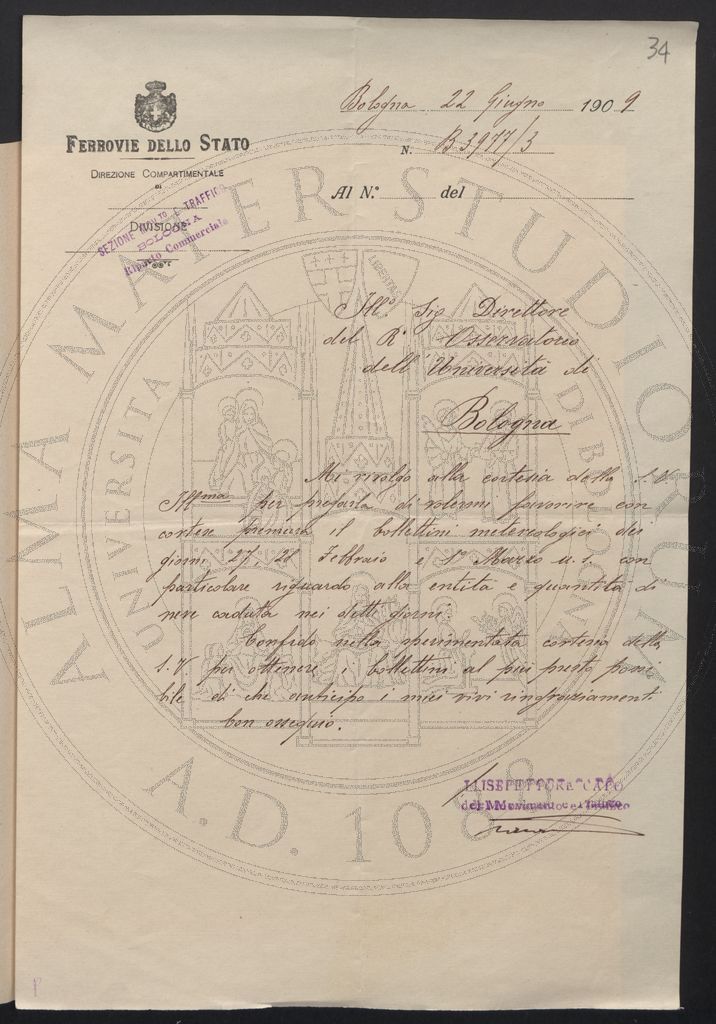 34
Bologna 22 Giugno 1909
FERROVIE DELLO STATO
N. B.3977/3
DIREZIONE COMPARTIMENTALE
DI
Al N.º del
SEZIONE MOV.TO E TRAFFICO
BOLOGNA
Riparto Commerciale
DIVISIONE
Ill.º Sig Direttore
del R.º Osservatorio
dell'Università di
Bologna
Mi rivolgo alla cortesia della S.V.
Ill.ma per pregarla di volermi favorire con
cortese premura il bollettini metereologici dei
giorni 27, 28 Febbraio e 1º Marzo u.s. con
particolare riguardo alla entità e quantità di
neve caduta nei detti giorni.
Confido nella sperimentata cortesia della
S.V per ottenere i bollettini al più presto possi
bile di che anticipo i miei vivi ringraziamenti
Con ossequio.
L'ISPETTORE CAPO
del Movimento e Traffico
ALMA MATER STUDIORUM
UNIVERSITA DI BOLOGNA
LIBERTAS
A.D. 1088